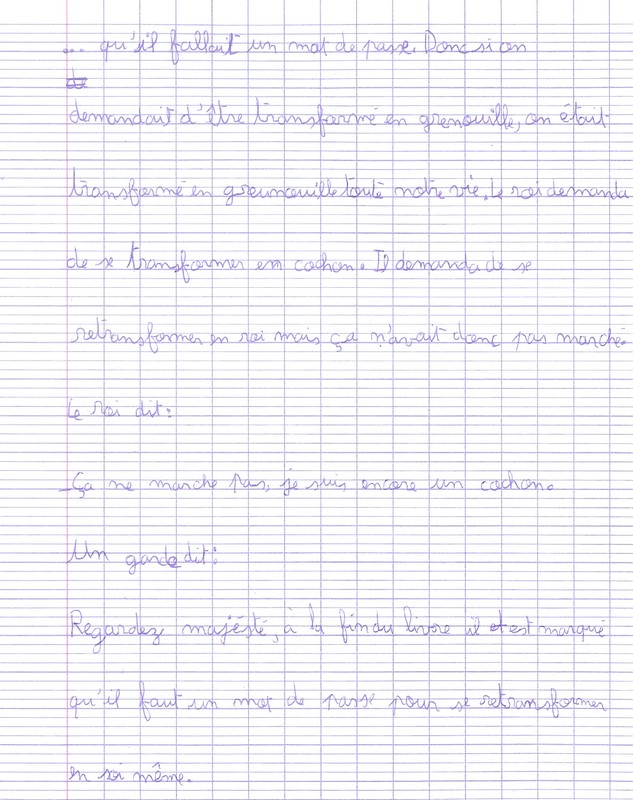 ... qu'il fallait un mot de passe. Donc si on
demandait d'être transformé en grenouille, on était
transformé en greunouille touté notre vie. Le roi demanda
de se transformer en cochon. Il demanda de se
retransformer en roi mais ça n'avait donc pas marché.
Le roi dit:
_Ça ne marche pas, je suis encore un cochon.
Un garde dit:
Regardez majésté, à la fin du livre il est marqué
qu'il faut un mot de passe pour se retransformer
en soi même.